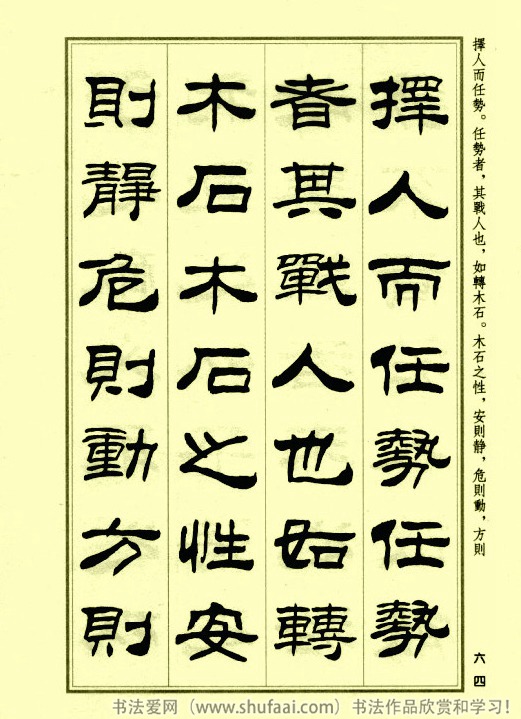 擇人而任勢。任勢者，其戰人也，如轉木石。木石之性，安則靜，危則動，方則
擇人而任勢任勢
者其戰人也如轉
木石木石之性安
則靜危則動方則
六四
书法爱网（www.shufaai.com）书法作品欣赏和学习！